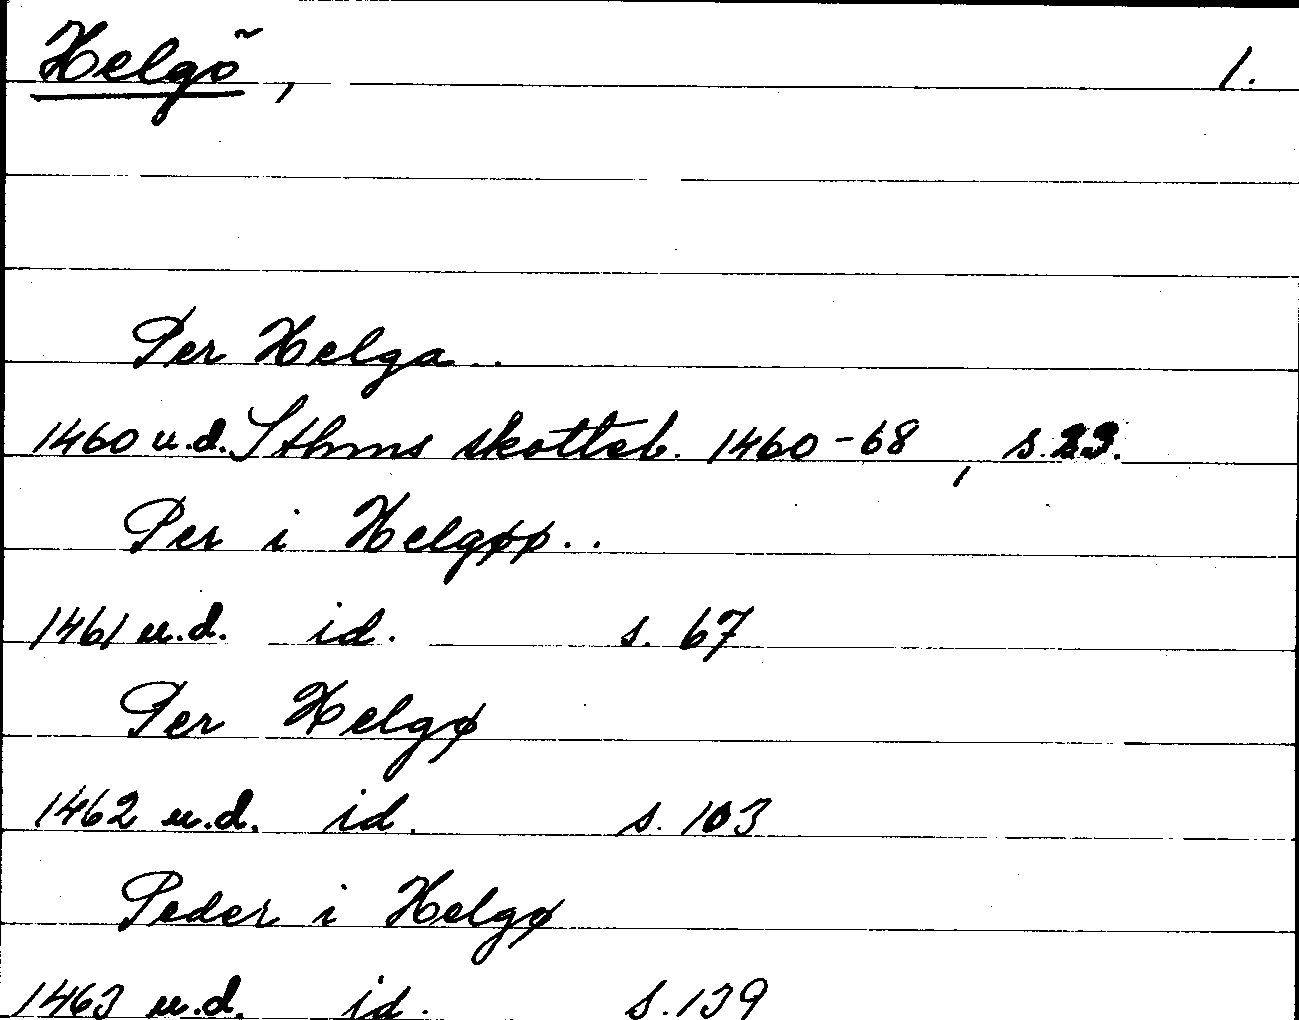 Helgö, 1.
Per Helga..
1460 u.d. Sthms skotteb. 1460-68, s. 33.
Per i Helgøø..
1461 u.d. id. s. 67
Per Helgø
1462 u.d. id. s. 103
Peder i Helgø
1463 u.d. id. s. 139